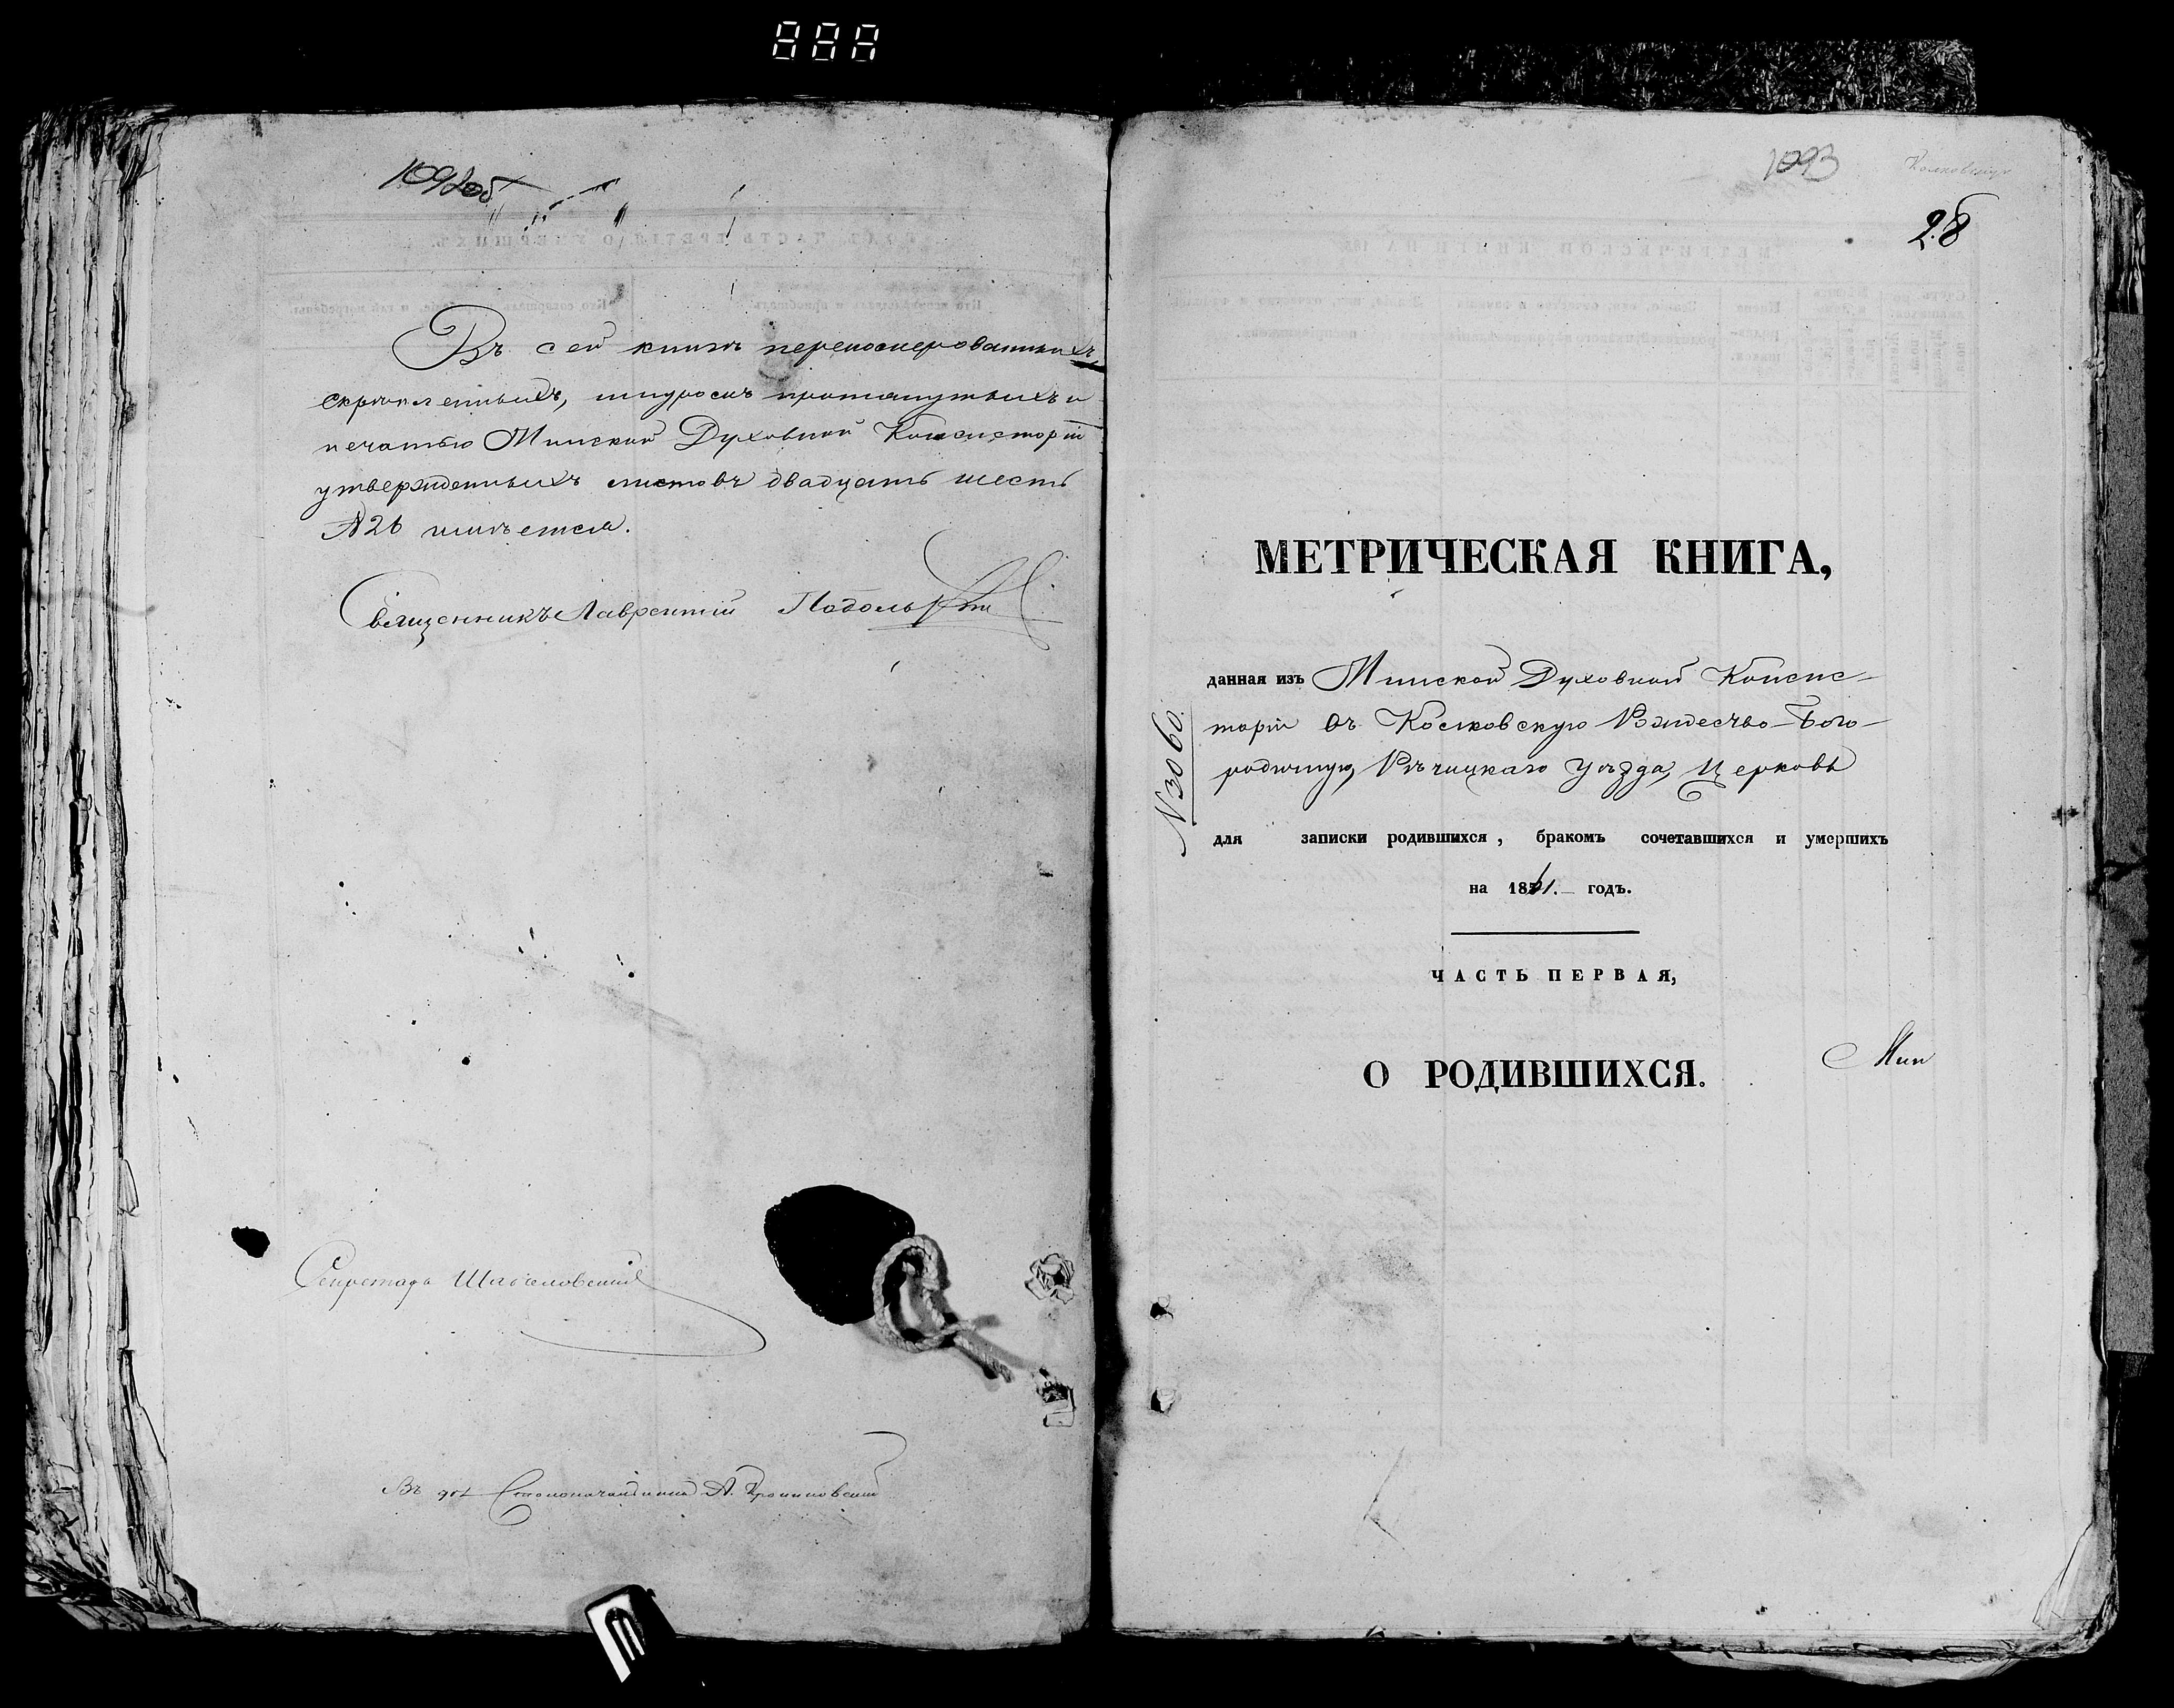 1092об
Въ сей книгѣ перенумерованныхъ
скрѣпленныхъ, шнуромъ протянутыхъ и
печатью Минской Духовной Консисторіи
утвержденныхъ листовъ двадцать шесть
№ 26 имѣется.
Священникъ Лаврентій
Секретарь
Въ Столоначальника А.
1093
28
МЕТРИЧЕСКАЯ КНИГА,
данная изъ Минской Духовной Консис-
торіи въ Рождество-Бого-
родичную, Рѣчицкаго Уѣзда, Церковь
№ 3060.
для записки родившихся, бракомъ сочетавшихся и умершихъ
на 1861. годъ.
ЧАСТЬ ПЕРВАЯ,
О РОДИВШИХСЯ.
Мин